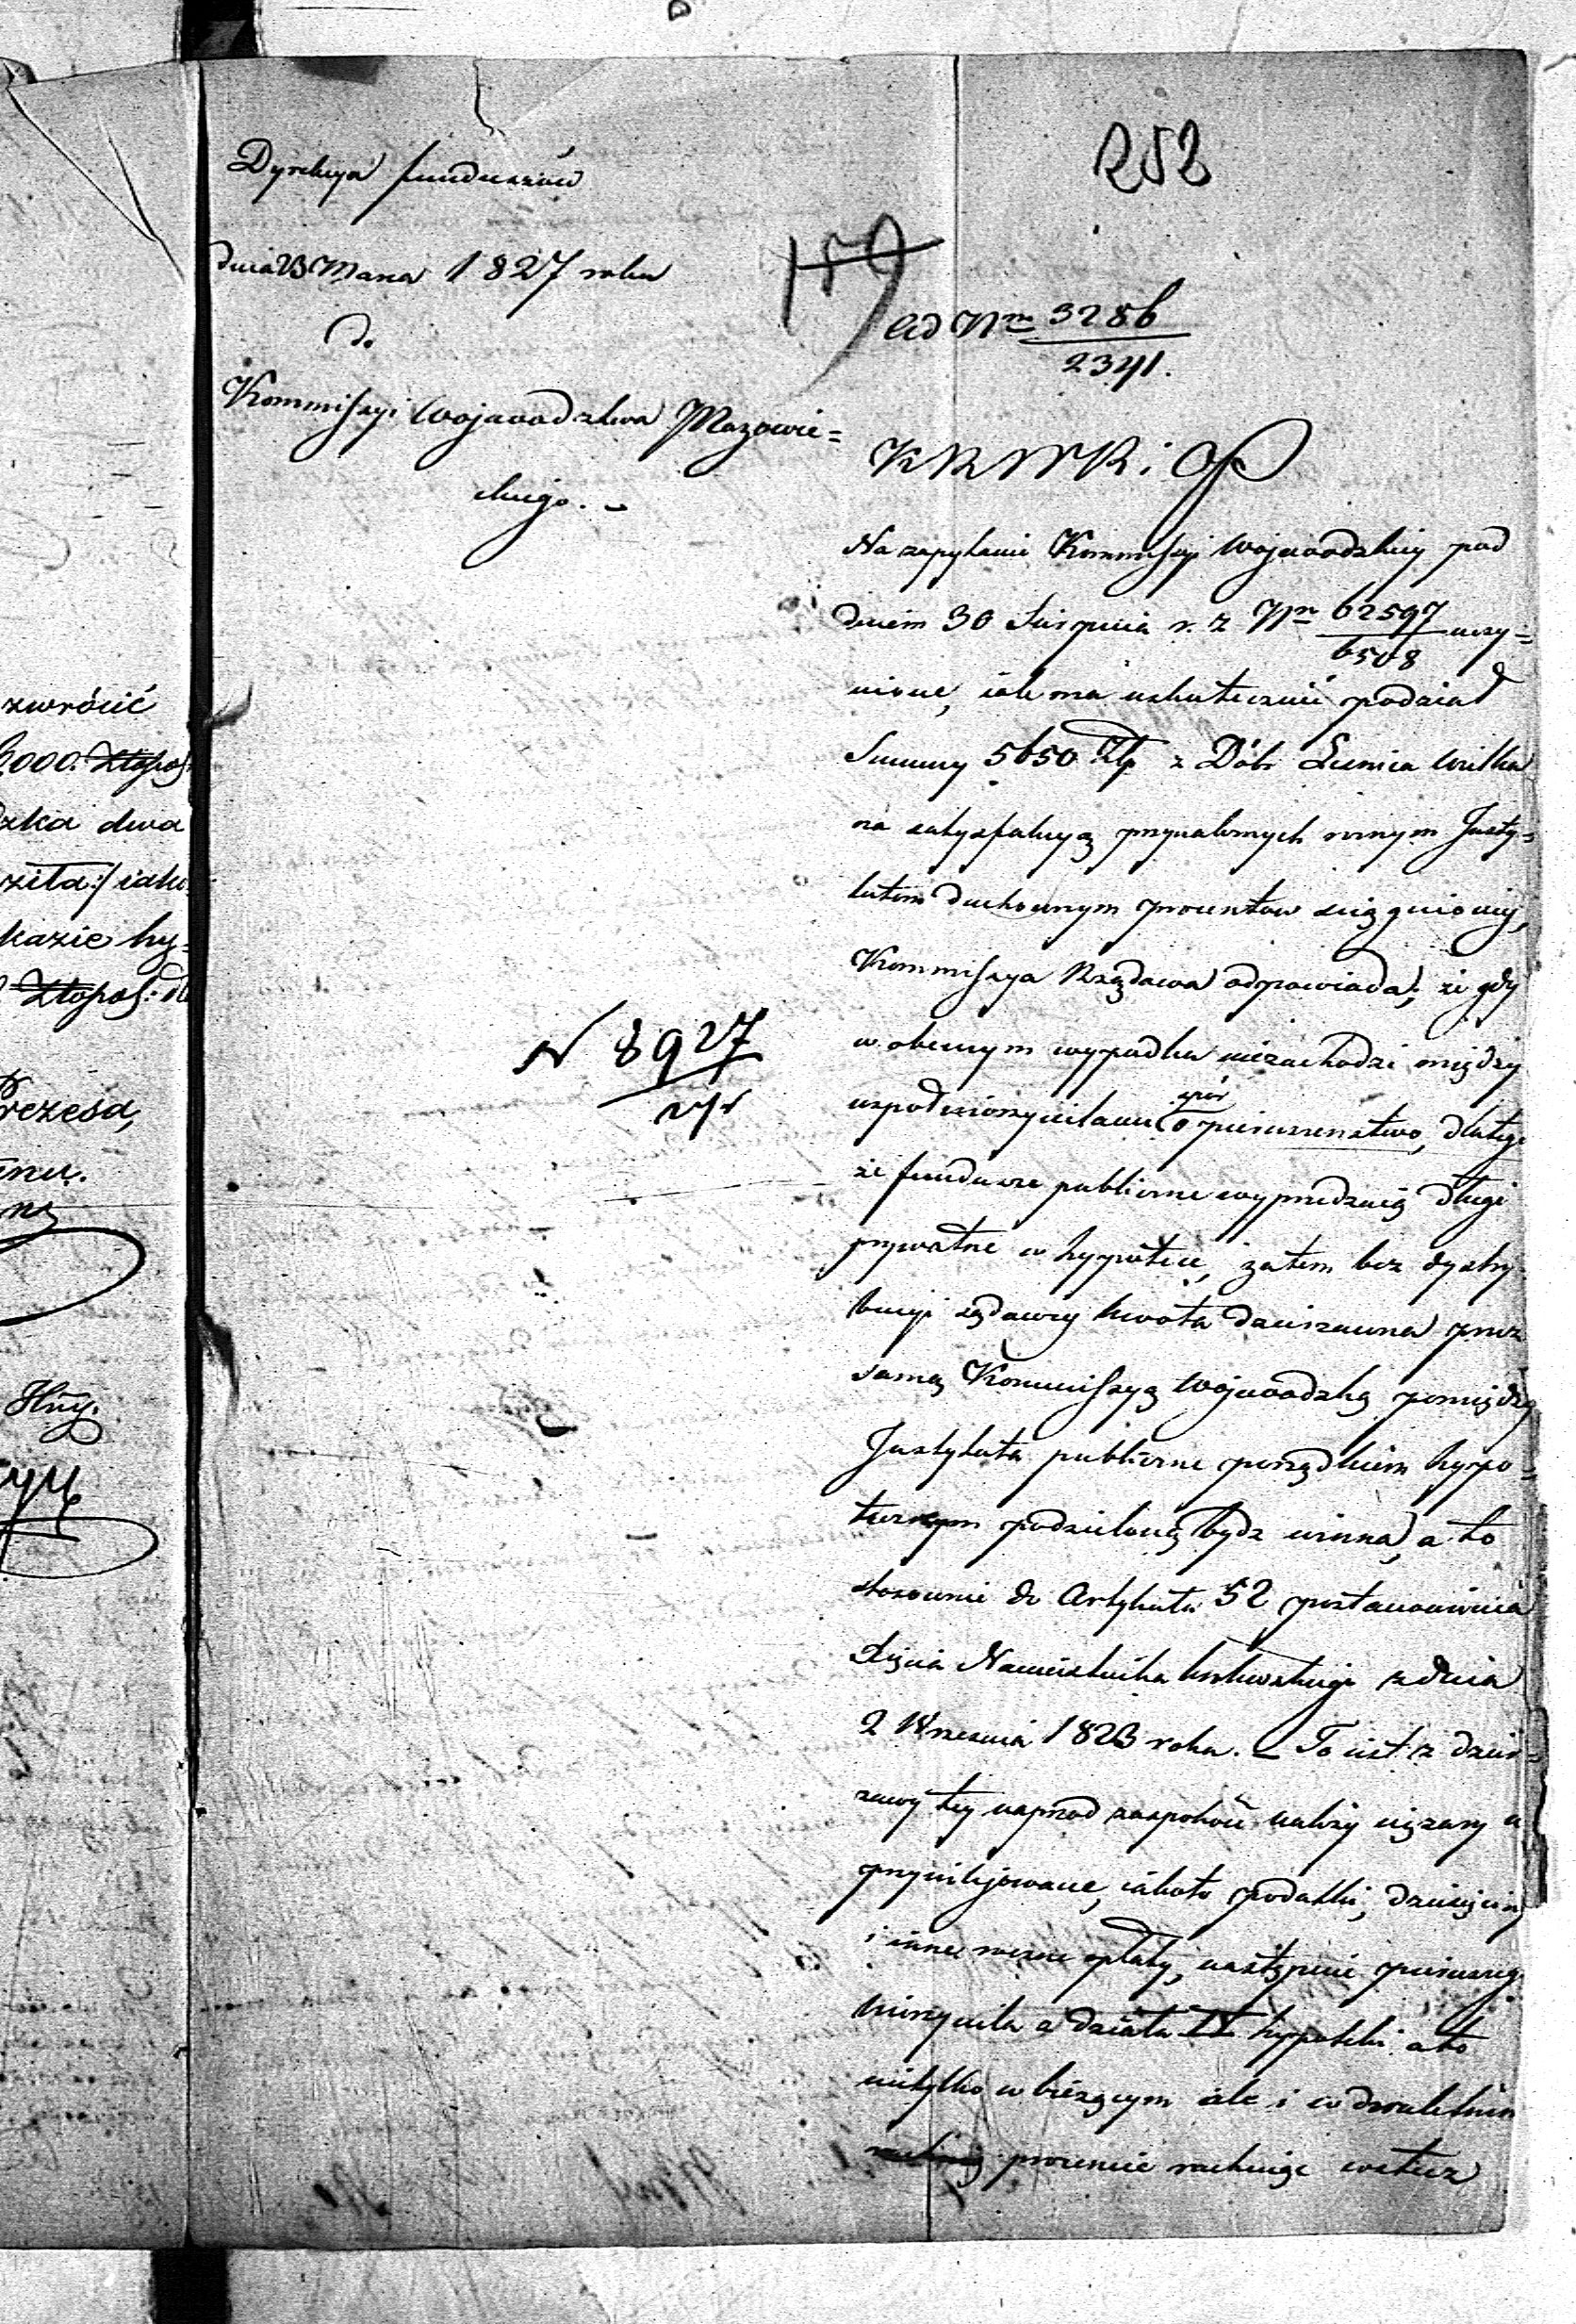 252
Dyrekcya funduszów
dnia 23 Marca 1827 roku
do
Kommissyi Woiewodztwa Mazowie=
ckiego. –
159
ad Nm 3286
2341.
K R W R i O P
Na zapytanie Kommissyi Woiewodzkiey pod
dniem 30 Sierpnia r. z. Nm 62597 uczy=
6508
nione, iak ma uskutecznić podział
Summy 5650 Złp z Dóbr Wielka
na satysfakcyą przynależnych roznym Insty=
tutom duchownym procentow sciągnioney,
Kommissya Rządowa odpowiada; że gdy
w obecnym wypadku niezachodzi między
współwierzycielami spór o pierwszenstwo, dlatego
że fundusze publiczne wyprzedzaią długi
prywatne w hypotece, zatem bez dystry=
bucyi sądowey kwota dzierzawna przez
samą Kommissyą Woiewodzką pomiędzy
Instytuta publiczne porządkiem hypo=
tecznym podzieloną bydz winna, a to
stosownie do Artykułu 52 postanowienia
Xięcia Namiestnika Królewskiego z dnia
2 Września 1823 roku. – To iest z dzier=
zawy tey naprzod zaspokoić należy ciężary u
przywilejowane, iakoto podatki, dziesięciny
i inne roczne opłaty, następnie pierwszego
wierzyciela z działu IV hypoteki a to
nietylko w bieżącym ale i w dwuletnim
procencie rachuiąc wstecz
N 8927
zwrócić
2000. Złopol:
dzka dwa
zita:/ iako
kazie hy=
Złopol: dl
Prezesa,